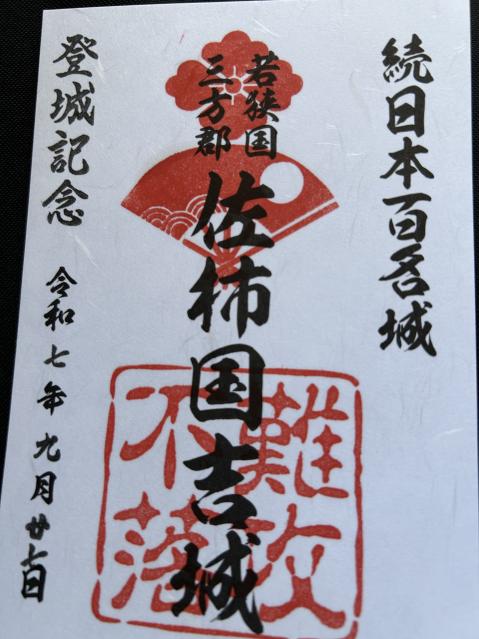 続日本百名城
若狭国
三方郡
佐柿国吉城
難攻
不落
登城記念
令和七年九月廿七日